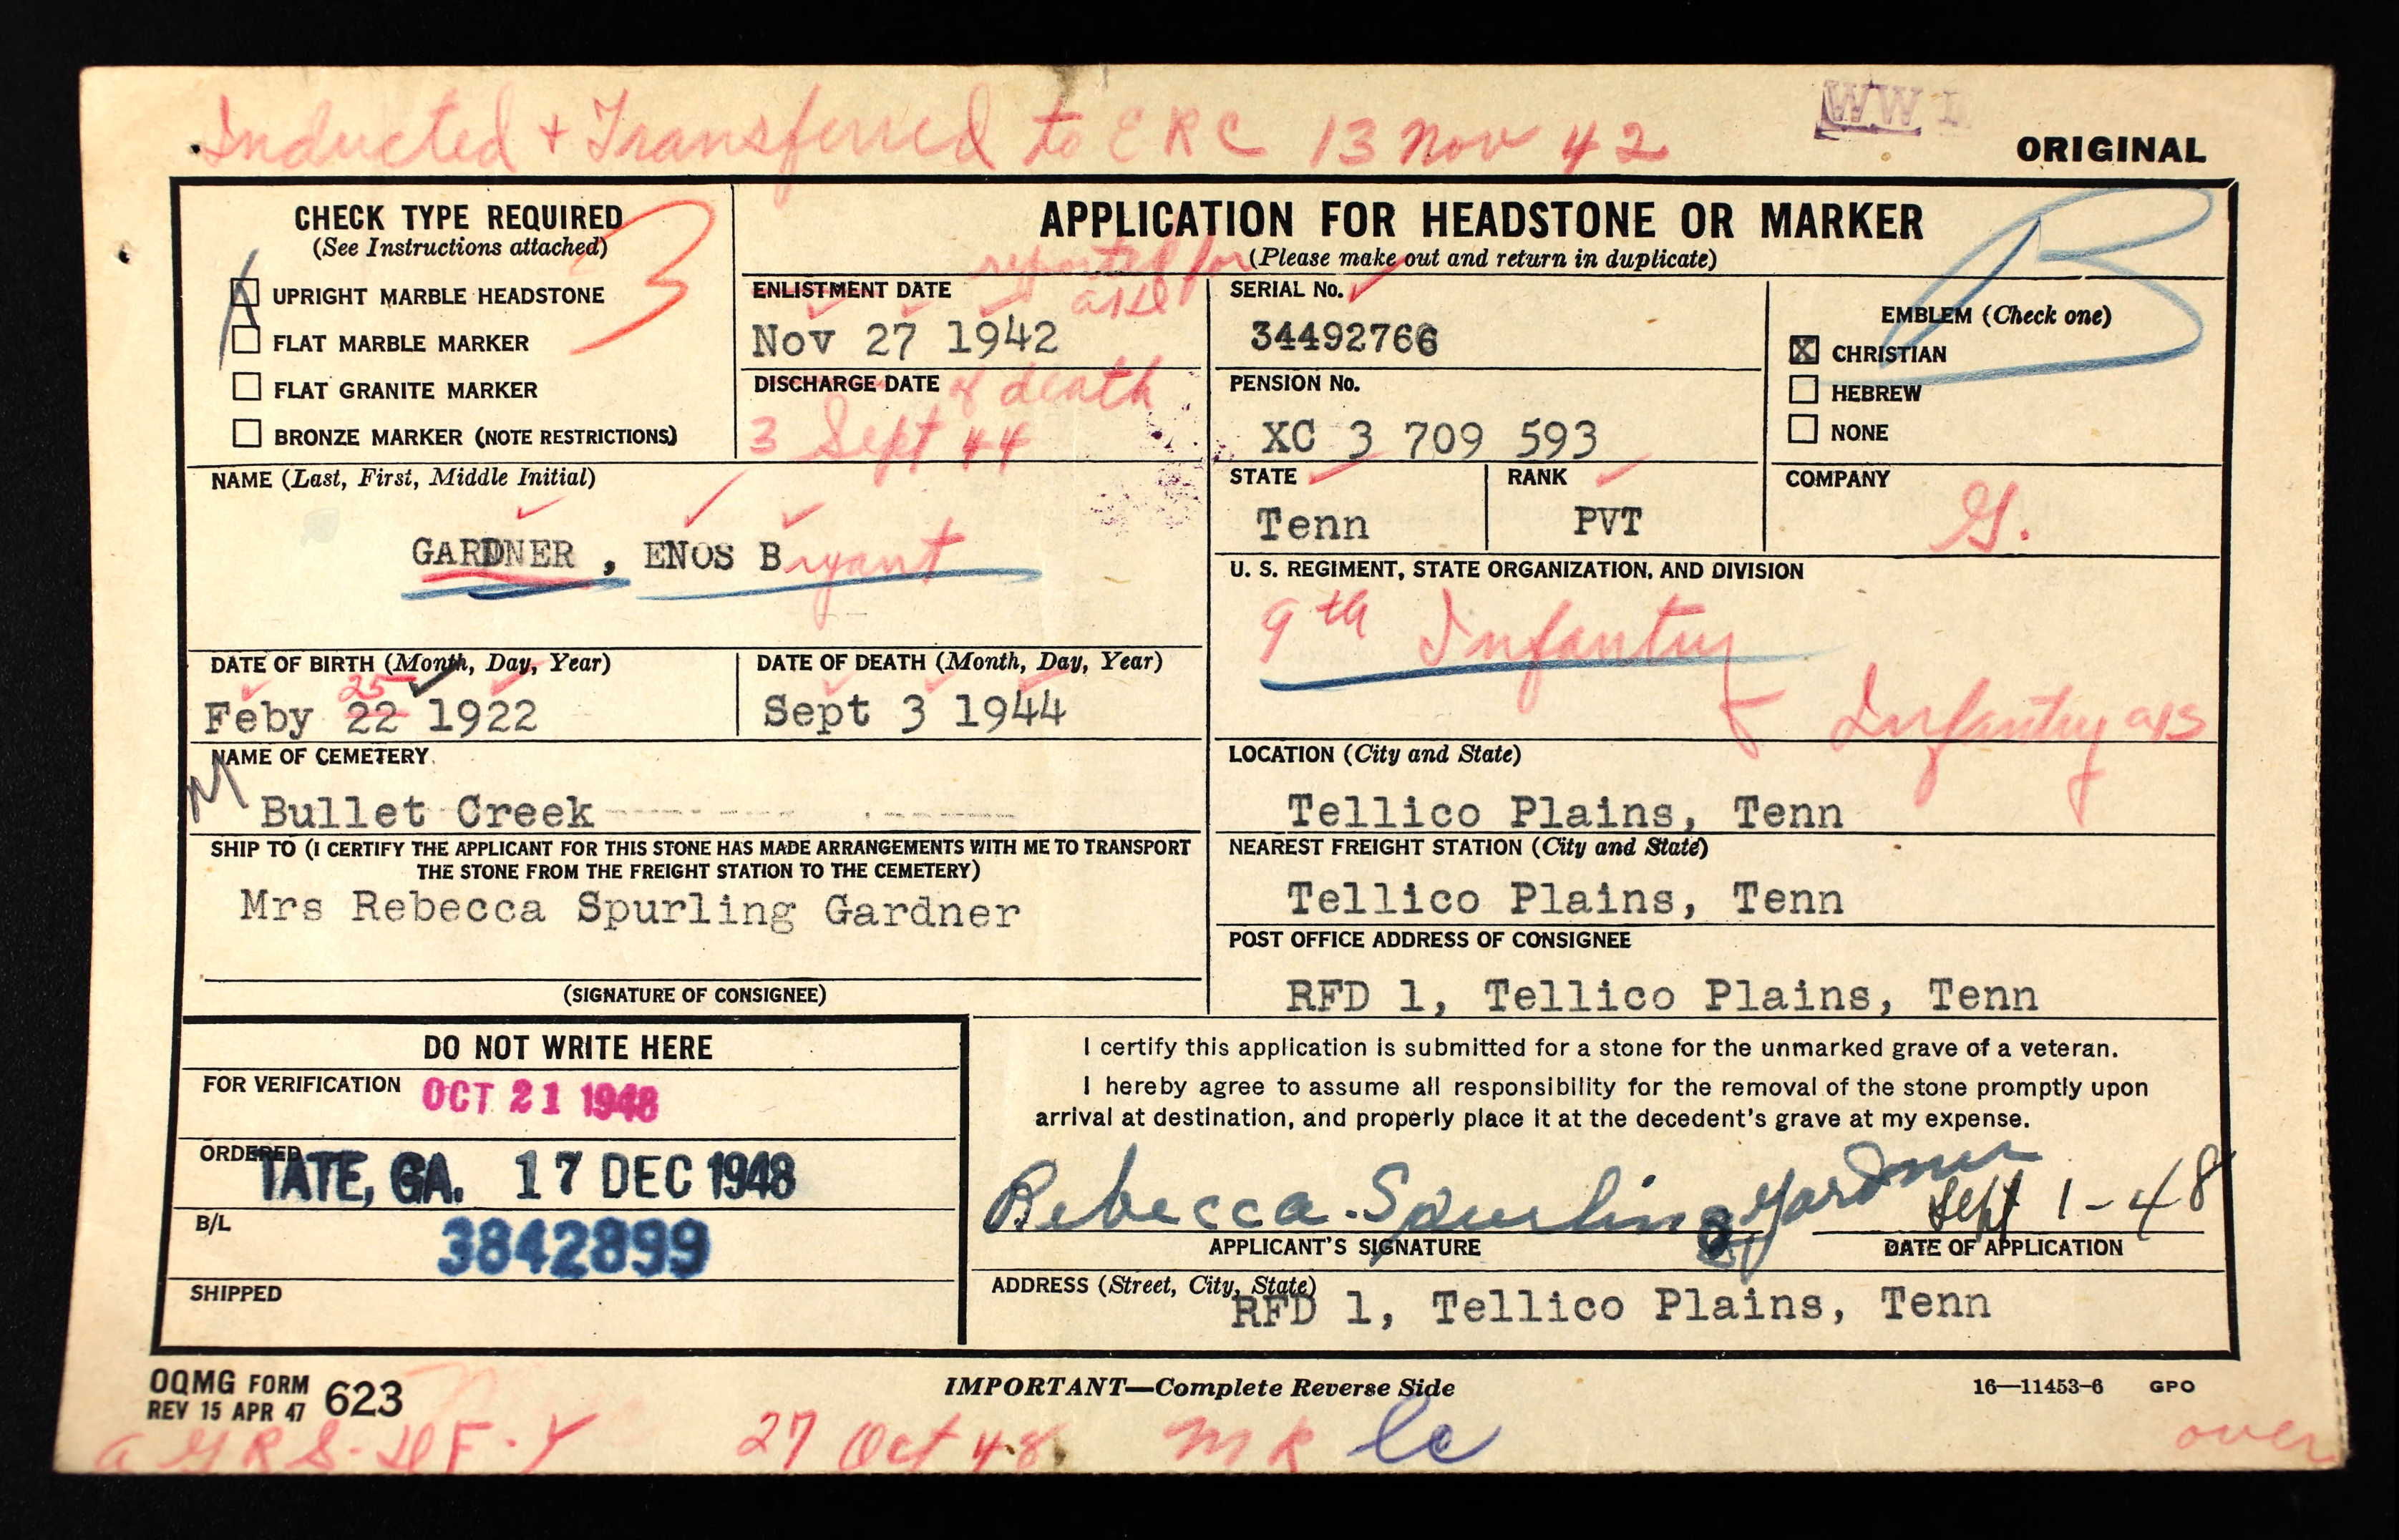 Inducted + Transferred to ERC 13 Nov 42
WW
ORIGINAL
CHECK TYPE REQUIRED
(See Instructions attached)
3
UPRIGHT MARBLE HEADSTONE
FLAT MARBLE MARKER
FLAT GRANITE MARKER
BRONZE MARKER (NOTE RESTRICTIONS)
APPLICATION FOR HEADSTONE OR MARKER
(Please make out and return in duplicate)
B
reported for
ENLISTMENT DATE
Nov 27 1942
SERIAL No.
34492766
EMBLEM (Check one)
X CHRISTIAN
HEBREW
NONE
DISCHARGE DATE of death
3 Sept 44
PENSION No.
XC 3 709 593
NAME (Last, First, Middle Initial)
GARDNER, ENOS Bryant
STATE
Tenn
RANK
PVT
COMPANY
G.
U. S. REGIMENT, STATE ORGANIZATION, AND DIVISION
9th Infantry
Infantry
DATE OF BIRTH (Month, Day, Year)
25
Feby 22 1922
DATE OF DEATH (Month, Day, Year)
Sept 3 1944
NAME OF CEMETERY
M
Bullet Creek
LOCATION (City and State)
Tellico Plains, Tenn
SHIP TO (I CERTIFY THE APPLICANT FOR THIS STONE HAS MADE ARRANGEMENTS WITH ME TO TRANSPORT
THE STONE FROM THE FREIGHT STATION TO THE CEMETERY)
Mrs Rebecca Spurling Gardner
(SIGNATURE OF CONSIGNEE)
NEAREST FREIGHT STATION (City and State)
Tellico Plains, Tenn
POST OFFICE ADDRESS OF CONSIGNEE
RFD 1, Tellico Plains, Tenn
DO NOT WRITE HERE
FOR VERIFICATION OCT 21 1948
ORDERED
TATE, GA. 17 DEC 1948
B/L
3842899
SHIPPED
I certify this application is submitted for a stone for the unmarked grave of a veteran.
I hereby agree to assume all responsibility for the removal of the stone promptly upon
arrival at destination, and properly place it at the decedent's grave at my expense.
Rebecca Spurling Gardner
Sept 1-48
APPLICANT'S SIGNATURE
DATE OF APPLICATION
ADDRESS (Street, City, State)
RFD 1, Tellico Plains, Tenn
OQMG FORM 623
REV 15 APR 47
IMPORTANT—Complete Reverse Side
16—11453-6 GPO
27 Oct 48 MR
over